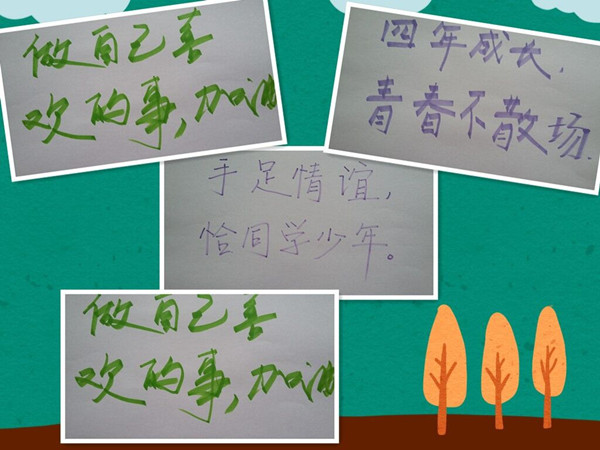 做自己喜
欢的事,加油
四年成长,
青春不散场.
手足情谊,
恰同学少年。
做自己喜
欢的事,加油